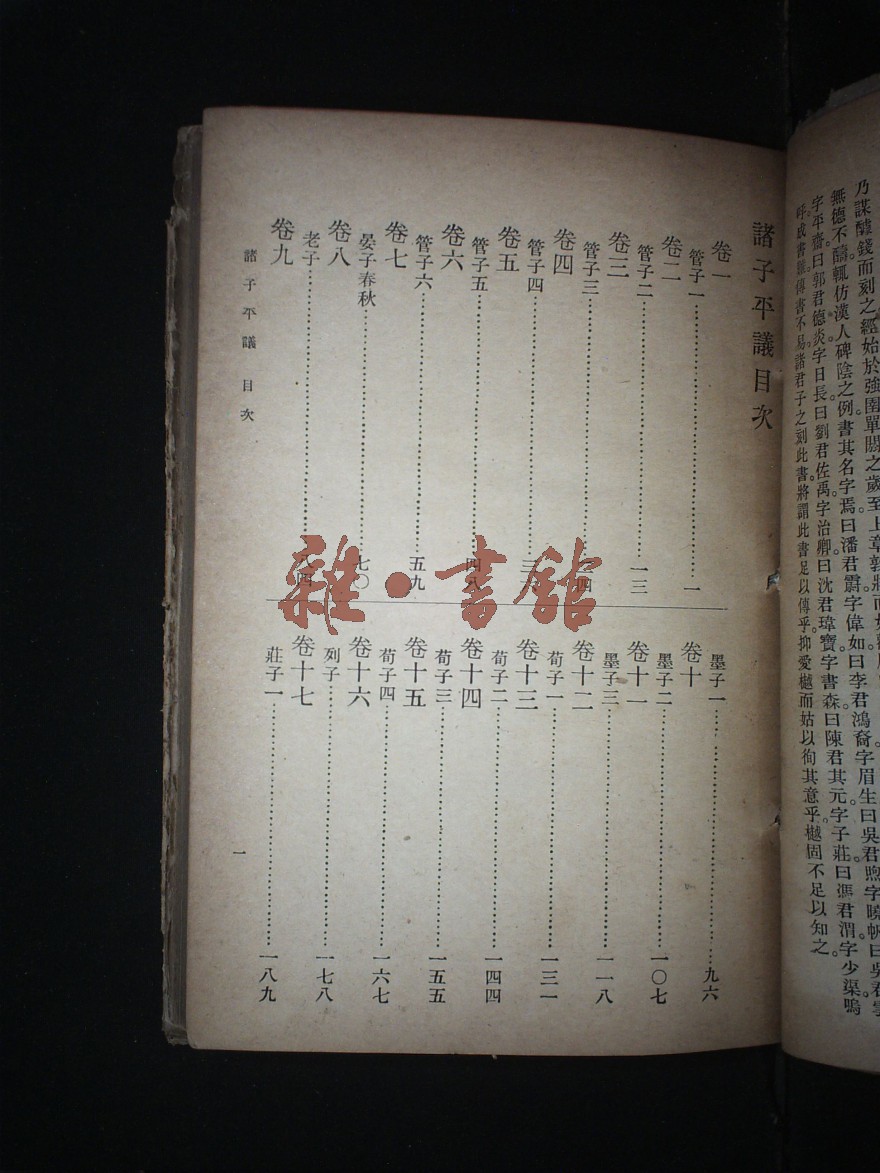 乃謀醵錢而刻之經始於強圉單閼之歲至上章敦牂而
無德不讎輒仿漢人碑陰之例書其名字焉。曰潘君霨字偉如曰李君鴻裔字眉生曰吳君煦字曉帆曰吳君雲
字平齋。曰郭君德炎字日長。曰劉君佐禹字治卿。曰沈君瑋寶字書森曰陳君其元字子莊曰馮君渭字少渠嗚
呼。成書難。傳書不易。諸君子之刻此書將謂此書足以傳乎。抑愛樾而姑以徇其意乎。樾固不足以知之。
諸子平議目次
卷一
管子一……一
卷二
管子二……一三
卷三
管子三……二四
卷四
管子四……
卷五
管子五……四八
卷六
管子六……五九
卷七
晏子春秋……七〇
卷八
老子……八四
卷九
墨子一……九六
卷十
墨子二……一〇七
卷十一
墨子三……一一八
卷十二
荀子一……一三一
卷十三
荀子二……一四四
卷十四
荀子三……一五五
卷十五
荀子四……一六七
卷十六
列子……一七八
卷十七
莊子一……一八九
諸子平議 目次
一
雜·書館